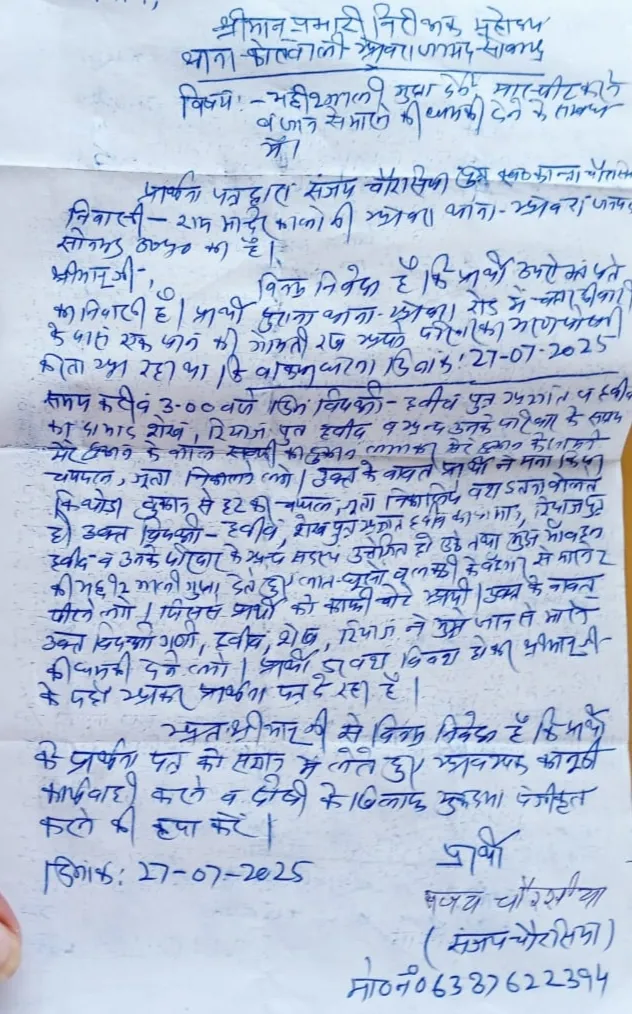 श्रीमान् प्रभारी निरीक्षक महोदय
थाना-कोतवाली
विषय:- भद्दी गाली गुप्ता देने मारपीट करने
व जान से मारने की धमकी देने के सम्बन्ध
में।
प्रार्थना पत्र द्वारा संजय चौरसिया पुत्र स्व०
निवासी- राम मंदिर कालोनी थाना-
सोनभद्र उ०प्र० का है।
श्रीमान् जी,
विनम्र निवेदन है कि प्रार्थी उपरोक्त पते
का निवासी है। प्रार्थी पुराना थाना- रोड में
के पास एक पान की गोमती रख अपने परिवार का भरण पोषण
करता आ रहा था कि दिनांक: 27-07-2025
समय करीब 3-00 बजे दिन विपक्षी- हबीब पुत्र व हबीब
का दामाद शेख, रियाज पुत्र हबीब व अन्य उनके परिवार के सदस्य
मेरे दुकान के
चप्पल, जूता निकालने लगे। उक्त के बावत प्रार्थी ने मना किया
कि थोड़ा दुकान से हटकर चप्पल, जूता निकालिए बस इतना बोलते
ही उक्त विपक्षी- हबीब, शेख पुत्र हबीब का दामाद, रियाज पुत्र
हबीब व उनके परिवार के अन्य सदस्य उत्तेजित हो उठे तथा मुझे माँ बहन
की भद्दी गाली गुप्ता देते हुए लात-घूसो व लकड़ी के से मारने
पीटने लगे। जिससे प्रार्थी को काफी चोटे आयी। उक्त के बावत
उक्त विपक्षी गणों, हबीब, शेख, रियाज ने मुझे जान से मारने
की धमकी देने लगे। प्रार्थी डरवश विवश होकर श्रीमान् जी
के यहाँ आकर प्रार्थना पत्र दे रहा है।
अतः श्रीमान् जी से विनम्र निवेदन है कि प्रार्थी
के प्रार्थना पत्र को संज्ञान में लेते हुए आवश्यक कानूनी
कार्यवाही करने व दोषी के खिलाफ मुकदमा पंजीकृत
करने की कृपा करें।
दिनांक: 27-07-2025
प्रार्थी
संजय चौरसीया
(संजय चौरसिया)
मो०नं० 06387622394